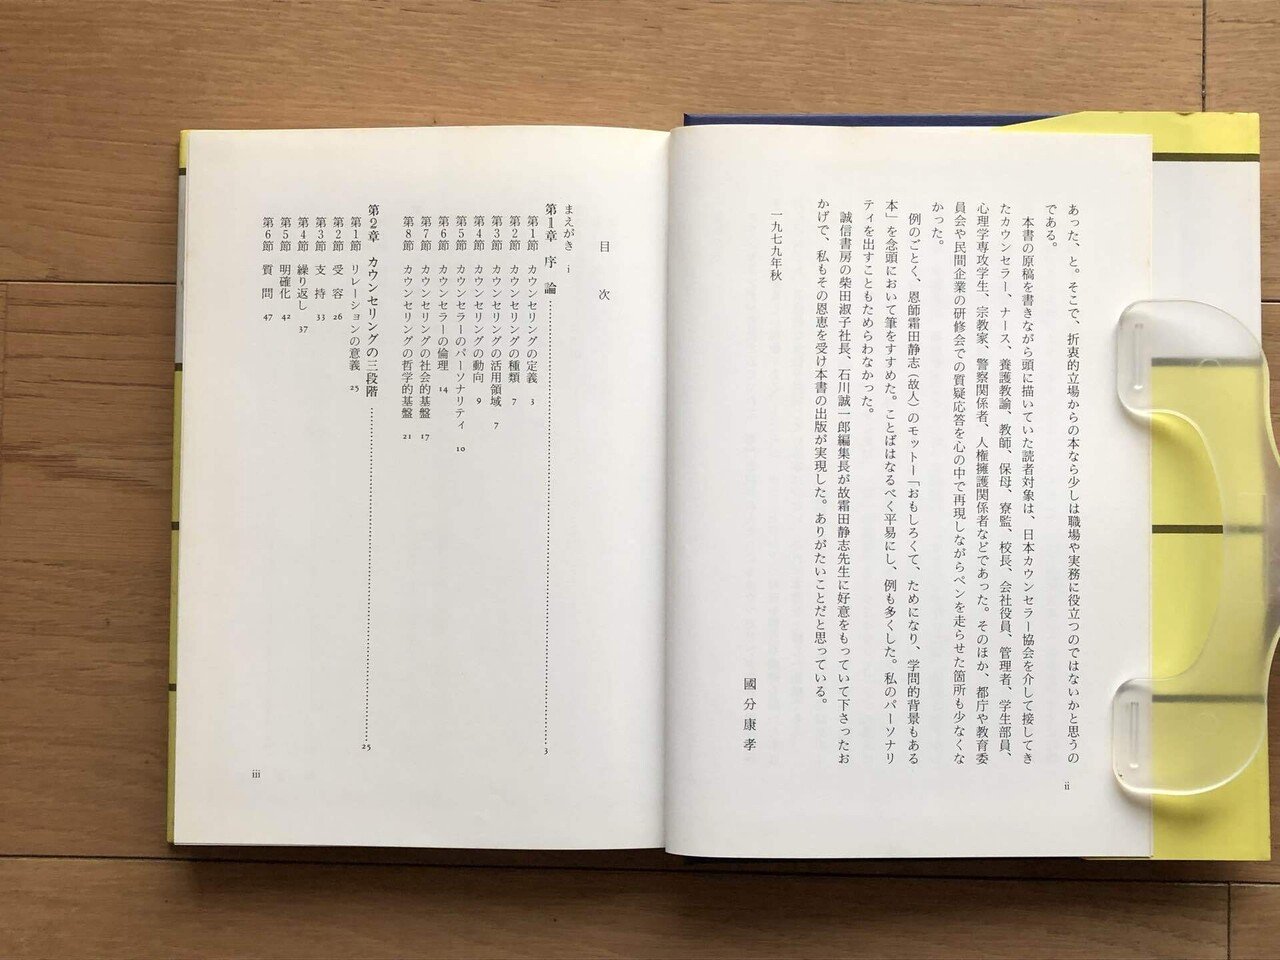 あった、と。そこで、折衷的立場からの本なら少しは職場や実務に役立つのではないかと思うの
である。
本書の原稿を書きながら頭に描いていた読者対象は、日本カウンセラー協会を介して接してき
たカウンセラー、ナース、養護教諭、教師、保母、寮監、校長、会社役員、管理者、学生部員、
心理学専攻学生、宗教家、警察関係者、人権擁護関係者などであった。そのほか、都庁や教育委
員会や民間企業の研修会での質疑応答を心の中で再現しながらペンを走らせた箇所も少なくな
かった。
例のごとく、恩師霜田静志(故人)のモットー「おもしろくて、ためになり、学問的背景もある
本」を念頭において筆をすすめた。ことばはなるべく平易にし、例も多くした。私のパーソナリ
ティを出すこともためらわなかった。
誠信書房の柴田淑子社長、石川誠一郎編集長が故霜田静志先生に好意をもっていて下さったお
かげで、私もその恩恵を受け本書の出版が実現した。ありがたいことだと思っている。
一九七九年秋
國分康孝
ii
目次
まえがき i
第1章 序論 3
第1節 カウンセリングの定義 3
第2節 カウンセリングの種類 7
第3節 カウンセリングの活用領域 7
第4節 カウンセリングの動向 9
第5節 カウンセラーのパーソナリティ 10
第6節 カウンセラーの倫理 14
第7節 カウンセリングの社会的基盤 17
第8節 カウンセリングの哲学的基盤 21
第2章 カウンセリングの三段階 25
第1節 リレーションの意義 25
第2節 受容 26
第3節 支持 33
第4節 繰り返し 37
第5節 明確化 42
第6節 質問 47
iii